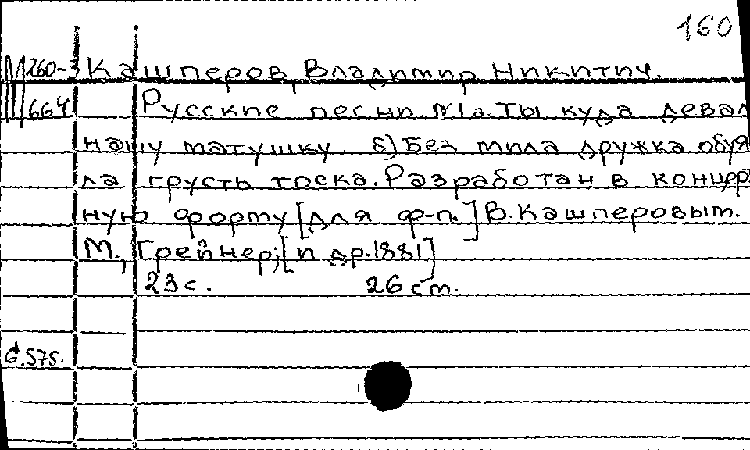 160
М 260-3 Кашперов, Владимир Никитич.
664 Русские песни №1 а. Ты куда девал
нашу матушку б) Без мила дружка обуя
ла грусть тоска. Разработан в концер
ную форму [для ф-п.] В. Кашперовым.
М., Грейнер; [п др. 1881]
23 с. 26 см.
С. 575.